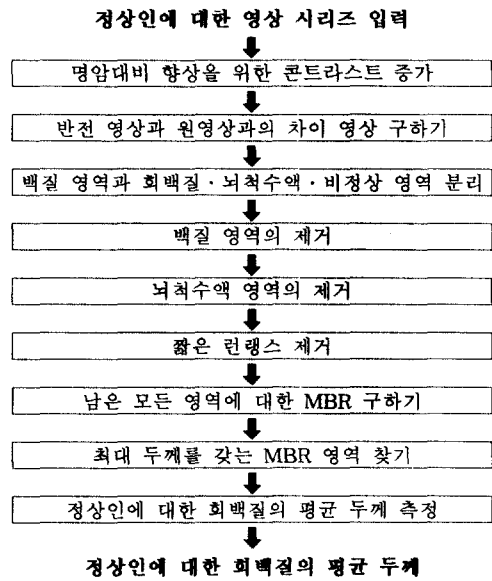 정상인에 대한 영상 시리즈 입력
명암대비 향상을 위한 콘트라스트 증가
반전 영상과 원영상과의 차이 영상 구하기
백질 영역과 회백질·뇌척수액·비정상 영역 분리
백질 영역의 제거
뇌척수액 영역의 제거
짧은 런랭스 제거
남은 모든 영역에 대한 MBR 구하기
최대 두께를 갖는 MBR 영역 찾기
정상인에 대한 회백질의 평균 두께 측정
정상인에 대한 회백질의 평균 두께